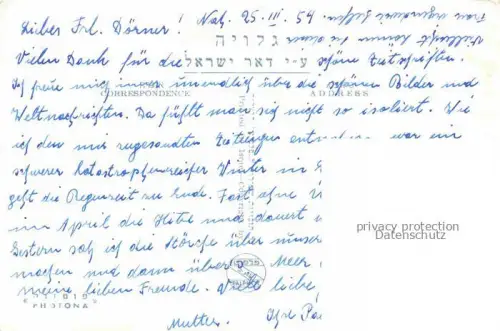 Lieber Frl. Dörner! Nah. 25. III. 54.
Vielleicht können Sie dieser
Frau irgendwie helfen.
גלויה
Vielen Dank für die schöne Zeitschriften.
ע״י דאר ישראל
Ich freue mich immer unendlich über die schönen Bilder und
CORRESPONDENCE ADDRESS
Weltnachrichten. Da fühlt man sich nicht so isoliert. Wie
ich den mir zugesandten Zeitungen war ein
schwerer katastrophenreicher Winter in
geht die Regenzeit zu Ende. Fast ohne
im April die Hitze und dauert
Gestern sah ich die Störche über unser
und dann über Meer
meine lieben Freunde. Viele liebe
Mutter. Ihr
PHOTONA
privacy protection
Datenschutz